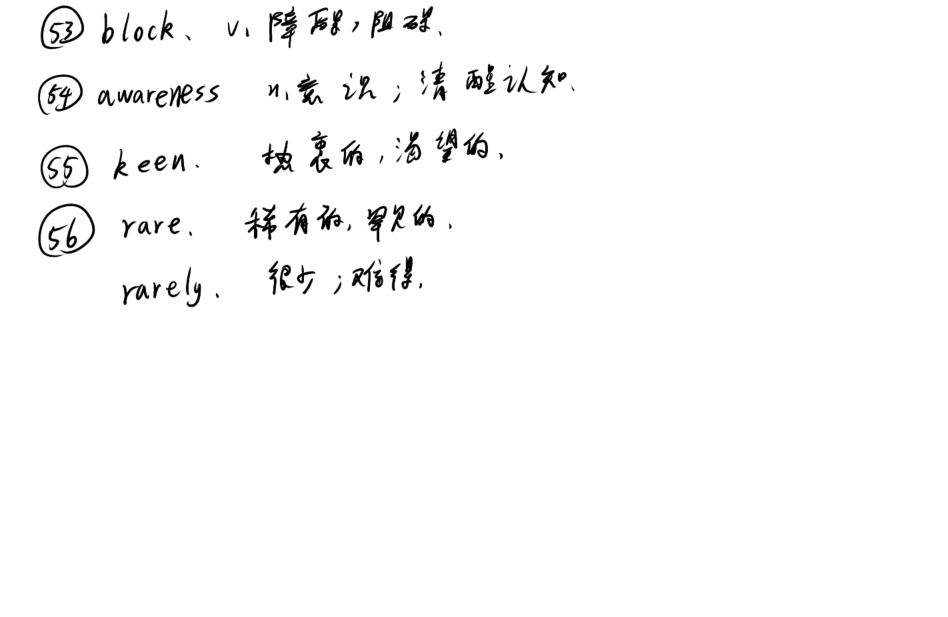 53 block、 v. 障碍，阻碍.
54 awareness n.意识；清醒认知.
55 keen. 热衷的，渴望的.
56 rare. 稀有的，罕见的.
rarely. 很少；难得.